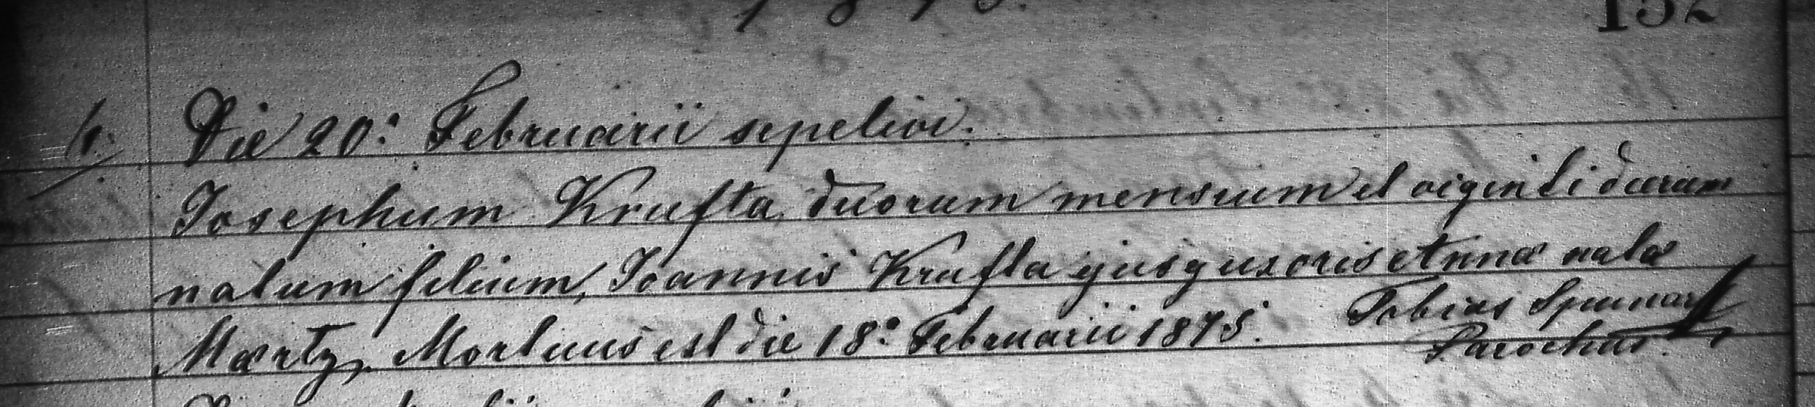 1875. 152
1. Die 20ª Februarii sepelivi.
Josephum Krufta, duorum mensium et viginti dierum
natum filium, Joannis Krufta ejusq uxoris Annæ natæ
Mærtz, Mortuus est die 18ª Februarii 1875. Tobias
Parochus.